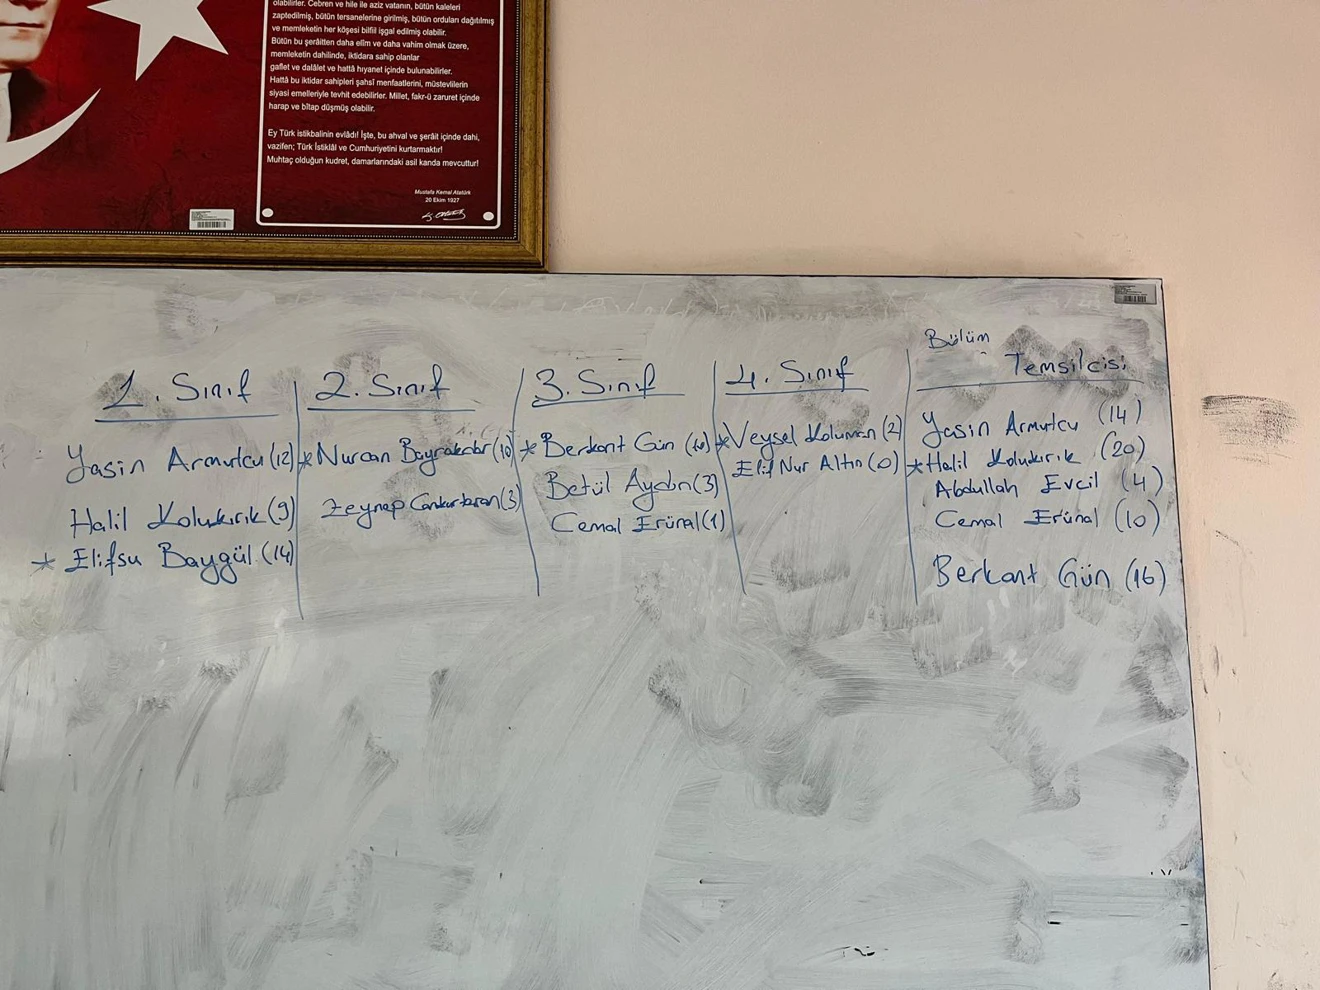 olabilirler. Cebren ve hile ile aziz vatanın, bütün kaleleri
zaptedilmiş, bütün tersanelerine girilmiş, bütün orduları dağıtılmış
ve memleketin her köşesi bilfiil işgal edilmiş olabilir.
Bütün bu şerâitten daha elîm ve daha vahim olmak üzere,
memleketin dahilinde, iktidara sahip olanlar
gaflet ve dalâlet ve hattâ hıyanet içinde bulunabilirler.
Hattâ bu iktidar sahipleri şahsî menfaatlerini, müstevlilerin
siyasi emelleriyle tevhit edebilirler. Millet, fakr-ü zaruret içinde
harap ve bîtap düşmüş olabilir.
Ey Türk istikbalinin evlâdı! İşte, bu ahval ve şerâit içinde dahi,
vazifen; Türk İstiklâl ve Cumhuriyetini kurtarmaktır!
Muhtaç olduğun kudret, damarlarındaki asil kanda mevcuttur!
Mustafa Kemal Atatürk
20 Ekim 1927
1. Sınıf
Yasin Armutcu (12)
Halil Kolukırık (9)
* Elifsu Baygül (14)
2. Sınıf
* Nurcan Bayraktar (10)
Zeynep Cankurtaran (3)
3. Sınıf
* Berkant Gün (10)
Betül Aydın (3)
Cemal Erünal (1)
4. Sınıf
* Veysel Koluman (2)
Elif Nur Altın (0)
Bölüm
Temsilcisi
Yasin Armutcu (14)
* Halil Kolukırık (20)
Abdullah Evcil (4)
Cemal Erünal (10)
Berkant Gün (16)